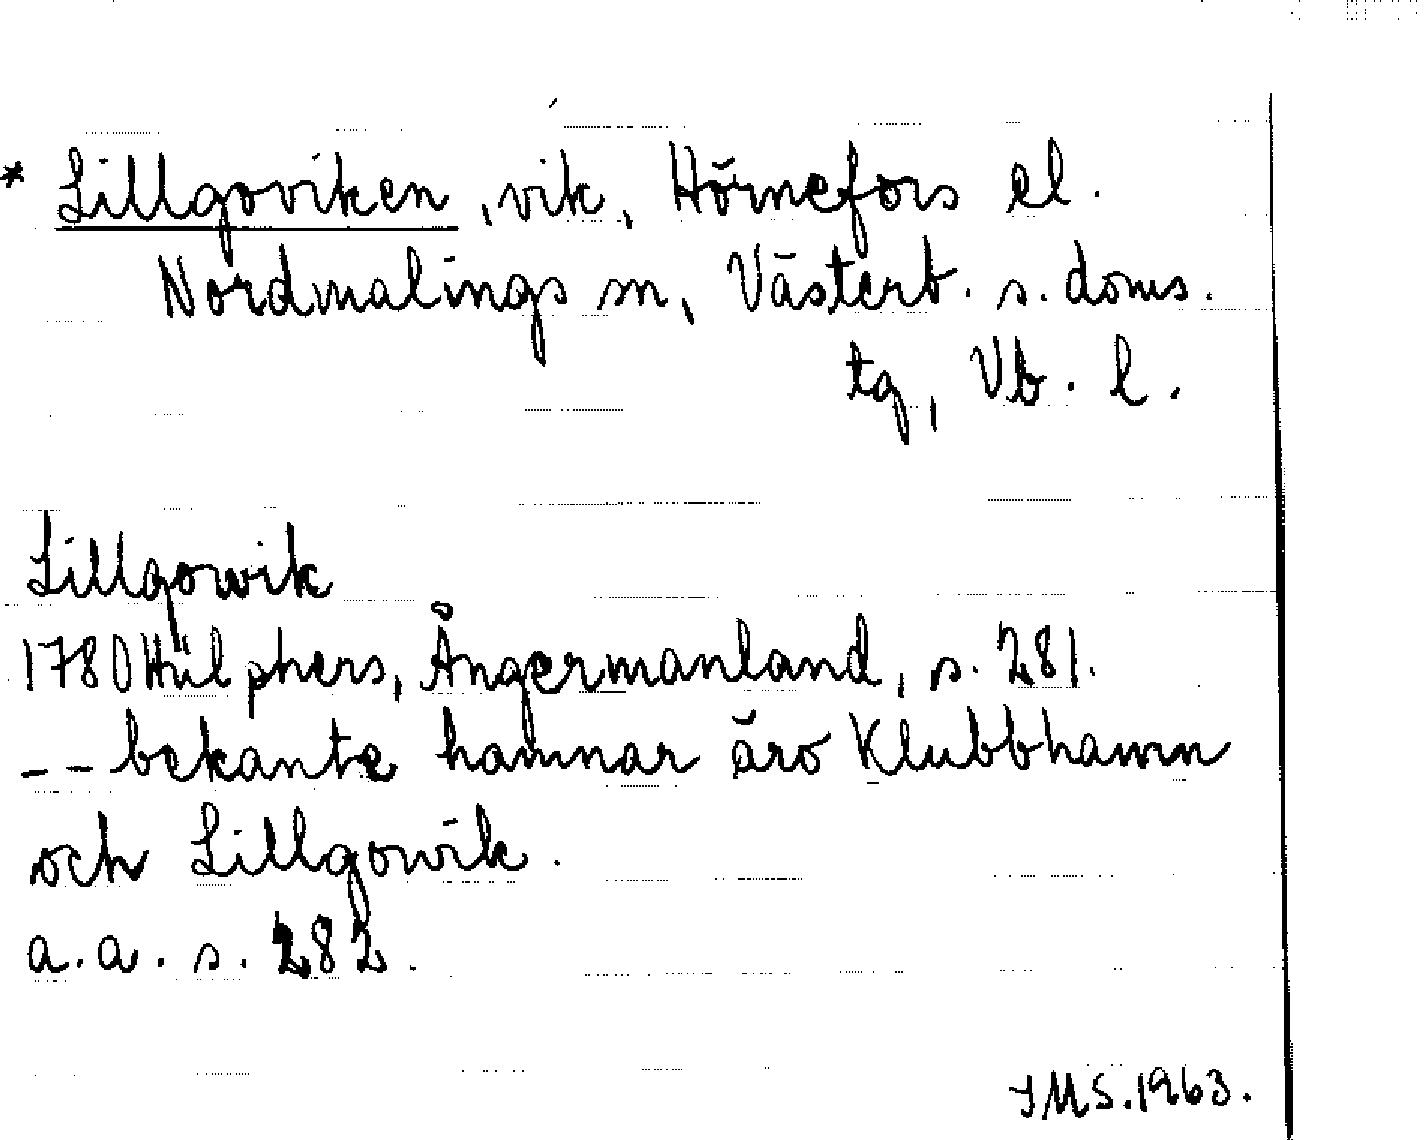 * Lillgoviken, vik, Hörnefors el.
Nordmalings sn, Västerb. s. doms.
tg, Vb. l.
Lillgowik
1780 Hülphers, Ångermanland, s. 281.
-- bekante hamnar äro Klubbhamn
och Lillgowik.
a.a. s. 282.
IMS. 1963.